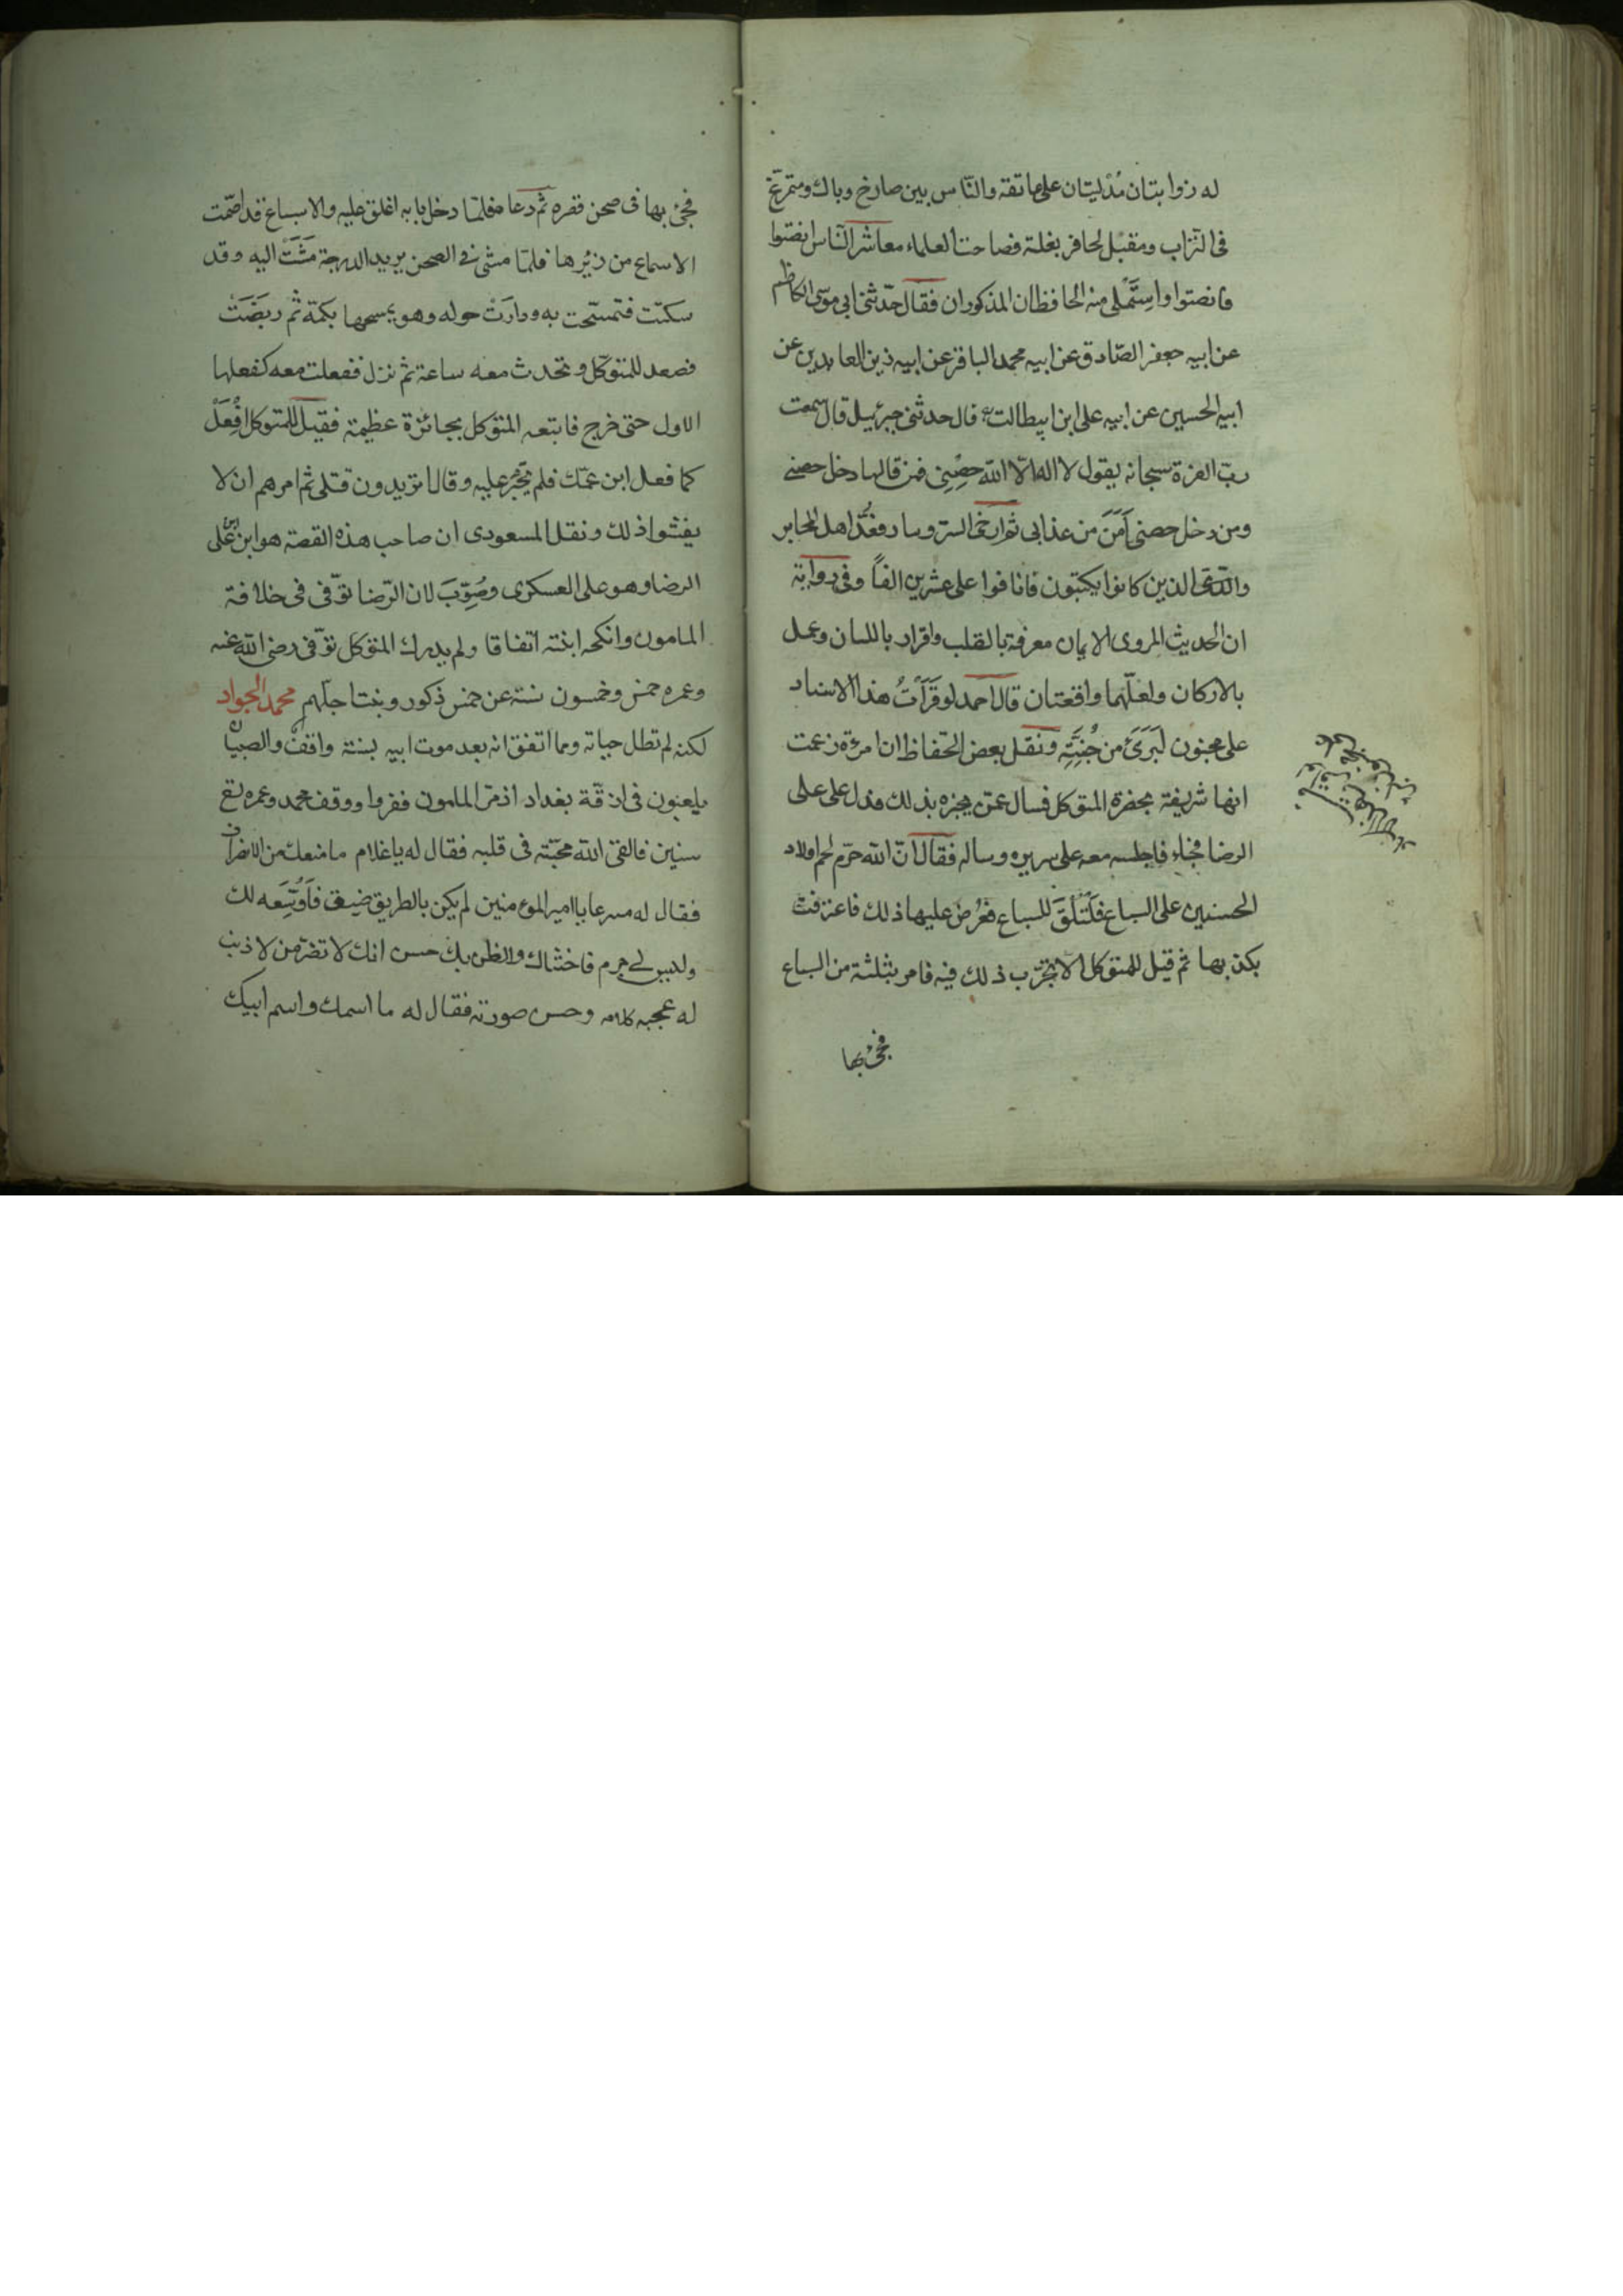 له ذوابتان مُدْليتان على عاتقه والنّاس بين صارخ وباك ومتمرّغ
فى التّراب ومقبّل لحافر بغلته فصاحت العلماء معاشر النّاس انصتوا
فانصتوا واسْتَمْلى منه الحافظان المذكوران فقال حدّثنى ابى موسى الكاظم
عن ابيه جعفر الصّادق عن ابيه محمد الباقر عن ابيه زين العابدين عن
ابيه الحسين عن ابيه على ابن ابيطالب قال حدثنى جبرئيل قال سمعت
ربّ العزة سبحانه يقول لا اله الّا الله حِصْنِى فمن قالها دخل حصنى
ومن دخل حصنى اَمَنَ من عذابى ثم ارخى الستر وسار فعُدَّ اهل المحابر
والدّوى الذين كانوا يكتبون فانافوا على عشرين الفاً وفى رواية
ان الحديث المروى الايمان معرفة بالقلب واقرار باللسان وعمل
بالاركان ولعلّهما واقعتان قال احمد لو قَرَأتُ هذا الاسناد
على مجنون لَبَرَئَ من جُنِّتِه ونقل بعض الحفاظ ان امرءة زعمت
انها شريفة بحضرة المتوكل فسال عمّن يخبره بذلك فدل على على
الرضا فجاء فاجلسه معه على سريره وساله فقال انّ الله حرّم لحم اولاد
الحسنين على السباع فَلْتُلْقَ للسباع فعُرضَ عليها ذلك فاعترفت
بكذبها ثم قيل للمتوكل الا تجرّب ذلك فيه فامر بثلثة من السباع
فجئ بها
فجئ بها فى صحن قصره ثم دعاه فلمّا دخل بابه اغلق عليه والاسباع قد اصمّت
الاسماع من زئيرها فلمّا مشى فى الصحن يريد الدرجة مَشَتْ اليه وقد
سكنت فتمسّحت به ودارَتْ حوله وهو يمسحها بكمّه ثم ربَضَتْ
فصعد للمتوكّل وتحدث معه ساعة ثم نزل ففعلت معه كفعلها
الاول حتى خرج فاتبعه المتوكل بجائزة عظيمة فقيل للمتوكل افْعَلْ
كما فعل ابن عمّك فلم يَجْرِ عليه وقال اتريدون قتلى ثم امرهم ان لا
يفشوا ذلك ونقل المسعودى ان صاحب هذه القصة هو ابن ابن على
الرضا وهو على العسكرى وصُوِّبَ لان الرّضا توفّى فى خلافة
المامون وانكحه ابنته اتفاقا ولم يدرك المتوكل توفّى رضى الله عنه
وعمره خمس وخمسون سنة عن خمس ذكور وبنت اجلّهم محمد الجواد
لكنه لم تطل حياته ومما اتفق انه بعد موت ابيه بسنة واقفٌ والصبيان
يلعبون فى ازقّة بغداد اذ مرّ المامون ففروا ووقف محمد وعمره تسع
سنين فالقى الله محبّته فى قلبه فقال له يا غلام ما منعك من الانصراف
فقال له مسرعا يا امير المومنين لم يكن بالطريق ضيق فَاُوَسِّعه لك
وليس لى جرم فاخشاك والظن بك حسن انك لا تضرّ من لا ذنب
له عجبه كلامه وحسن صورته فقال له ما اسمك واسم ابيك